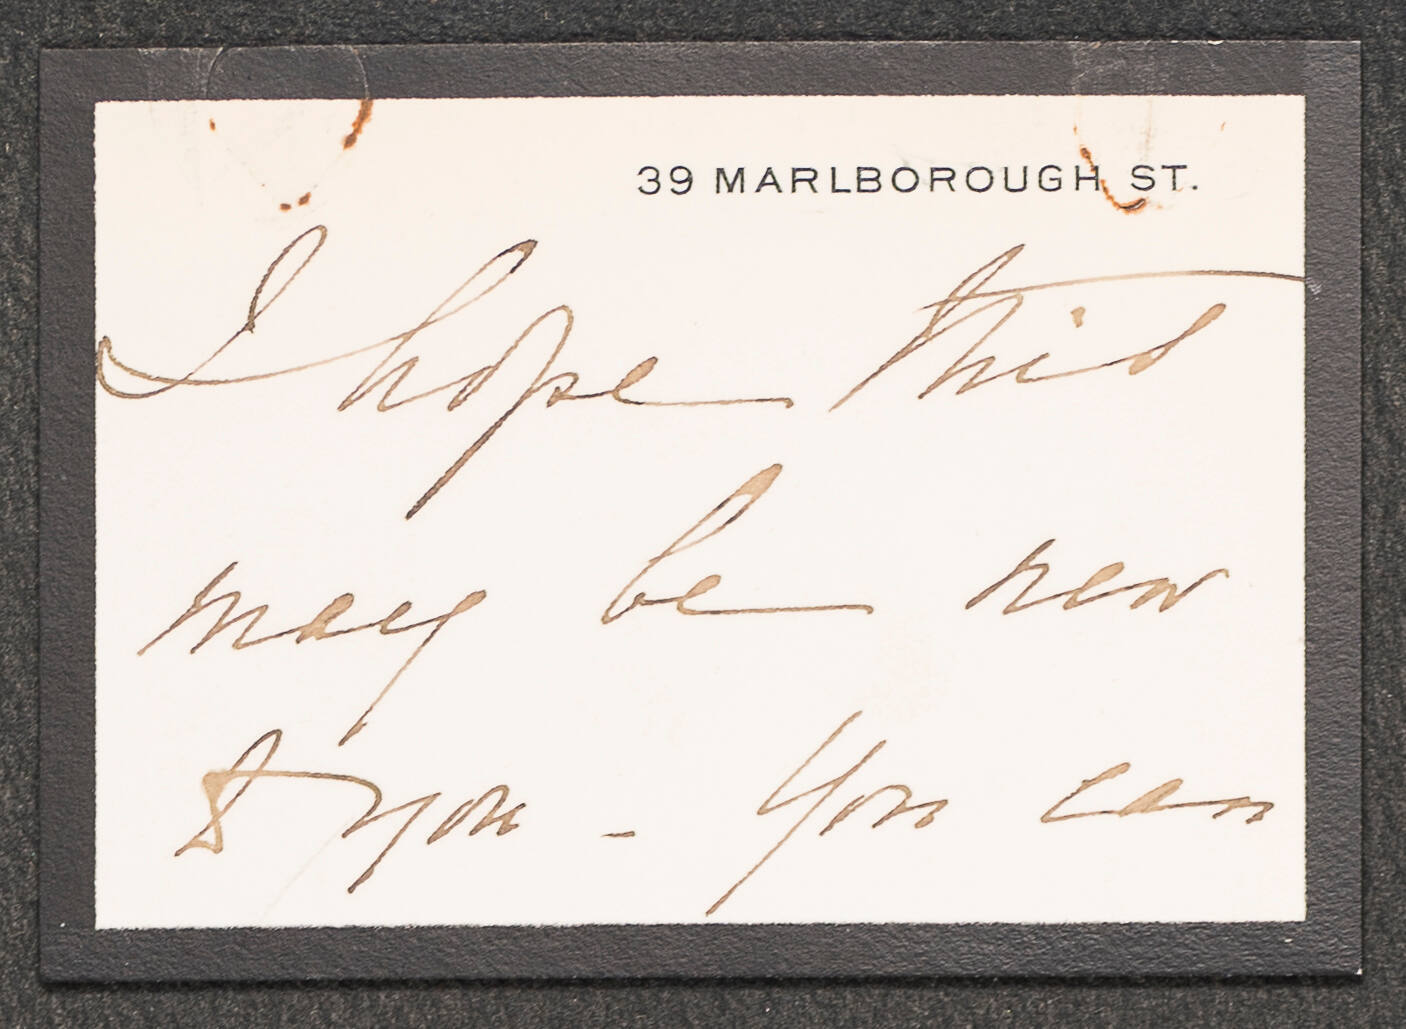 39 MARLBOROUGH ST.
I hope this
may be new
to you - You can